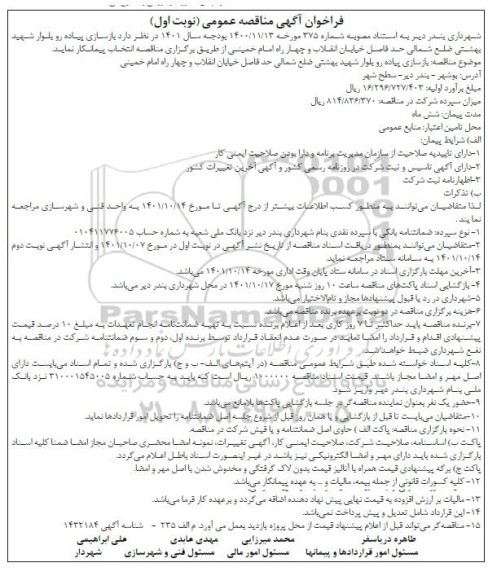 فراخوان آگهی مناقصه عمومی (نوبت اول)
شهرداری بندر دیر به استناد مصوبه شماره ۳۷۵ مورخه ۱۴۰۰/۱۱/۱۳ بودجه سال ۱۴۰۱ در نظر دارد بازسازی پیاده رو بلوار شهید
بهشتی ضلع شمالی حد فاصل خیابان انقلاب و چهار راه امام خمینی از طریق برگزاری مناقصه انتخاب پیمانکار نماید.
موضوع مناقصه: بازسازی پیاده رو بلوار شهید بهشتی ضلع شمالی حد فاصل خیابان انقلاب و چهار راه امام خمینی
آدرس: بوشهر - بندر دیر- سطح شهر
مبلغ برآورد اولیه: ۱۶/۲۹۶/۷۲۷/۴۰۳ ریال
میزان سپرده شرکت در مناقصه: ۸۱۴/۸۳۶/۳۷۰ ریال
مدت پیمان: شش ماه
محل تامین اعتبار: منابع عمومی
الف) شرایط پیمان:
۱-دارای تاییدیه صلاحیت از سازمان مدیریت برنامه و دارا بودن صلاحیت ایمنی کار
۲-دارای آگهی تاسیس و ثبت شرکت در روزنامه رسمی کشور و آگهی آخرین تغییرات کشور
۳-اظهارنامه ثبت شرکت
ب) تذکرات
لذا متقاضیان می‌توانند به منظور کسب اطلاعات بیشتر از درج آگهی تا مورخ ۱۴۰۱/۱۰/۱۴ به واحد فنی و شهرسازی مراجعه
نمایند.
۱- نوع سپرده: ضمانتنامه بانکی یا سپرده نقدی بنام شهرداری بندر دیر نزد بانک ملی شعبه به شماره حساب ۰۱۰۴۱۱۷۷۶۰۰۵
۲-متقاضیان می‌توانند بمنظور دریافت اسناد مناقصه از تاریخ نشر آگهی در نوبت اول در مورخ ۱۴۰۱/۱۰/۰۷ و انتشار آگهی نوبت دوم
۱۴۰۱/۱۰/۱۴ به سامانه ستاد مراجعه نماید.
۳-آخرین مهلت بارگزاری اسناد در سامانه ستاد پایان وقت اداری مورخه ۱۴۰۱/۱۰/۱۴ می‌باشد.
۴- بازگشایی اسناد پاکت‌های مناقصه ساعت ۱۰ روز شنبه مورخ ۱۴۰۱/۱۰/۱۷ در محل شهرداری بندر دیر می‌باشد.
۵-شهرداری در رد یا قبول پیشنهادها مجاز و تام‌الاختیار می‌باشد.
۶-هزینه برگزاری مناقصه در دو نوبت برعهده برنده مناقصه می‌باشد.
۷-برنده مناقصه باید حداکثر تا ۷ روز کاری بعد از اعلام برنده نسبت به تهیه ضمانتنامه انجام تعهدات به مبلغ ۱۰ درصد قیمت
پیشنهادی اقدام و قرارداد را امضا نمایند در صورت عدم انعقاد قرارداد توسط برنده اول، دوم و سوم ضمانتنامه شرکت در مناقصه به
نفع شهرداری ضبط خواهد شد.
۸-کلیه اسناد خواسته شده طبق شرایط عمومی مناقصه (در آیتم‌های الف- ب و ج) بارگزاری شده و تمام اسناد می‌بایست دارای
اصل مهر و امضا مجاز باشد. قیمت اسناد مناقصه ۱۰۰۰۰۰۰ ریال است که باید به حساب شماره ۳۱۰۰۰۱۵۴۵۰۰۵ نزد بانک
ملی بنام شهرداری بندر دیر واریز شود.
۹-حضور یک نفر بعنوان نماینده مناقصه‌گر در جلسه بازگشایی پاکت‌ها بلامانع می‌باشد.
۱۰-متقاضیان می‌بایست تا قبل از بازگشایی و یا همان روز قبل از شروع جلسه اصل ضمانتنامه را تحویل امور قراردادها نماید.
۱۱-نحوه بارگزاری مناقصه: پاکت الف) حاوی اصل ضمانتنامه و یا فیش شرکت در مناقصه
پاکت ب) اساسنامه، صلاحیت شرکت، صلاحیت ایمنی کار، آگهی تغییرات، نمونه امضا محضری صاحبان مجاز امضا ضمنا کلیه اسناد
بارگزاری شده باید دارای مهر و امضا الکترونیکی نیز باشد در غیر اینصورت اسناد باطل اعلام می‌گردد.
پاکت ج) برگه پیشنهادی قیمت همراه با آنالیز قیمت بدون لاک گرفتگی و مخدوش شدن با اصل مهر و امضا.
۱۲-کلیه کسورات قانونی از جمله بیمه، مالیات و ... به عهده پیمانکار می‌باشد.
۱۳- مالیات بر ارزش افزوده به قیمت نهایی پیش نهاد دهنده اضافه می‌گردد و برعهده کارفرما می‌باشد.
۱۴-این قرارداد شامل تعدیل و پیش پرداخت نمی‌باشد.
۱۵- مناقصه‌گر می‌تواند قبل از اعلام پیشنهاد قیمت از محل پروژه بازدید بعمل می آورد. م الف ۲۳۵ - شناسه آگهی ۱۴۳۲۱۸۴
طاهره دریاسفر محمد میرزایی مهدی عابدی علی ابراهیمی
مسئول امور قراردادها و پیمانها مسئول امور مالی مسئول فنی و شهرسازی شهردار